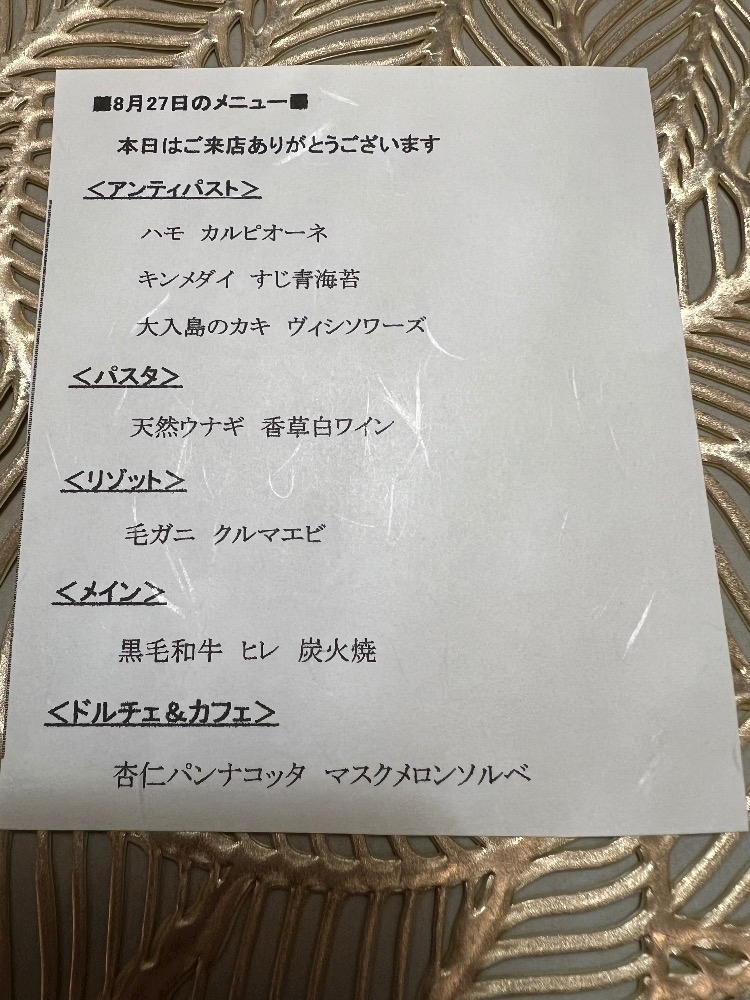 ■8月27日のメニュー■
本日はご来店ありがとうございます
＜アンティパスト＞
ハモ　カルピオーネ
キンメダイ　すじ青海苔
大入島のカキ　ヴィシソワーズ
＜パスタ＞
天然ウナギ　香草白ワイン
＜リゾット＞
毛ガニ　クルマエビ
＜メイン＞
黒毛和牛　ヒレ　炭火焼
＜ドルチェ＆カフェ＞
杏仁パンナコッタ　マスクメロンソルベ